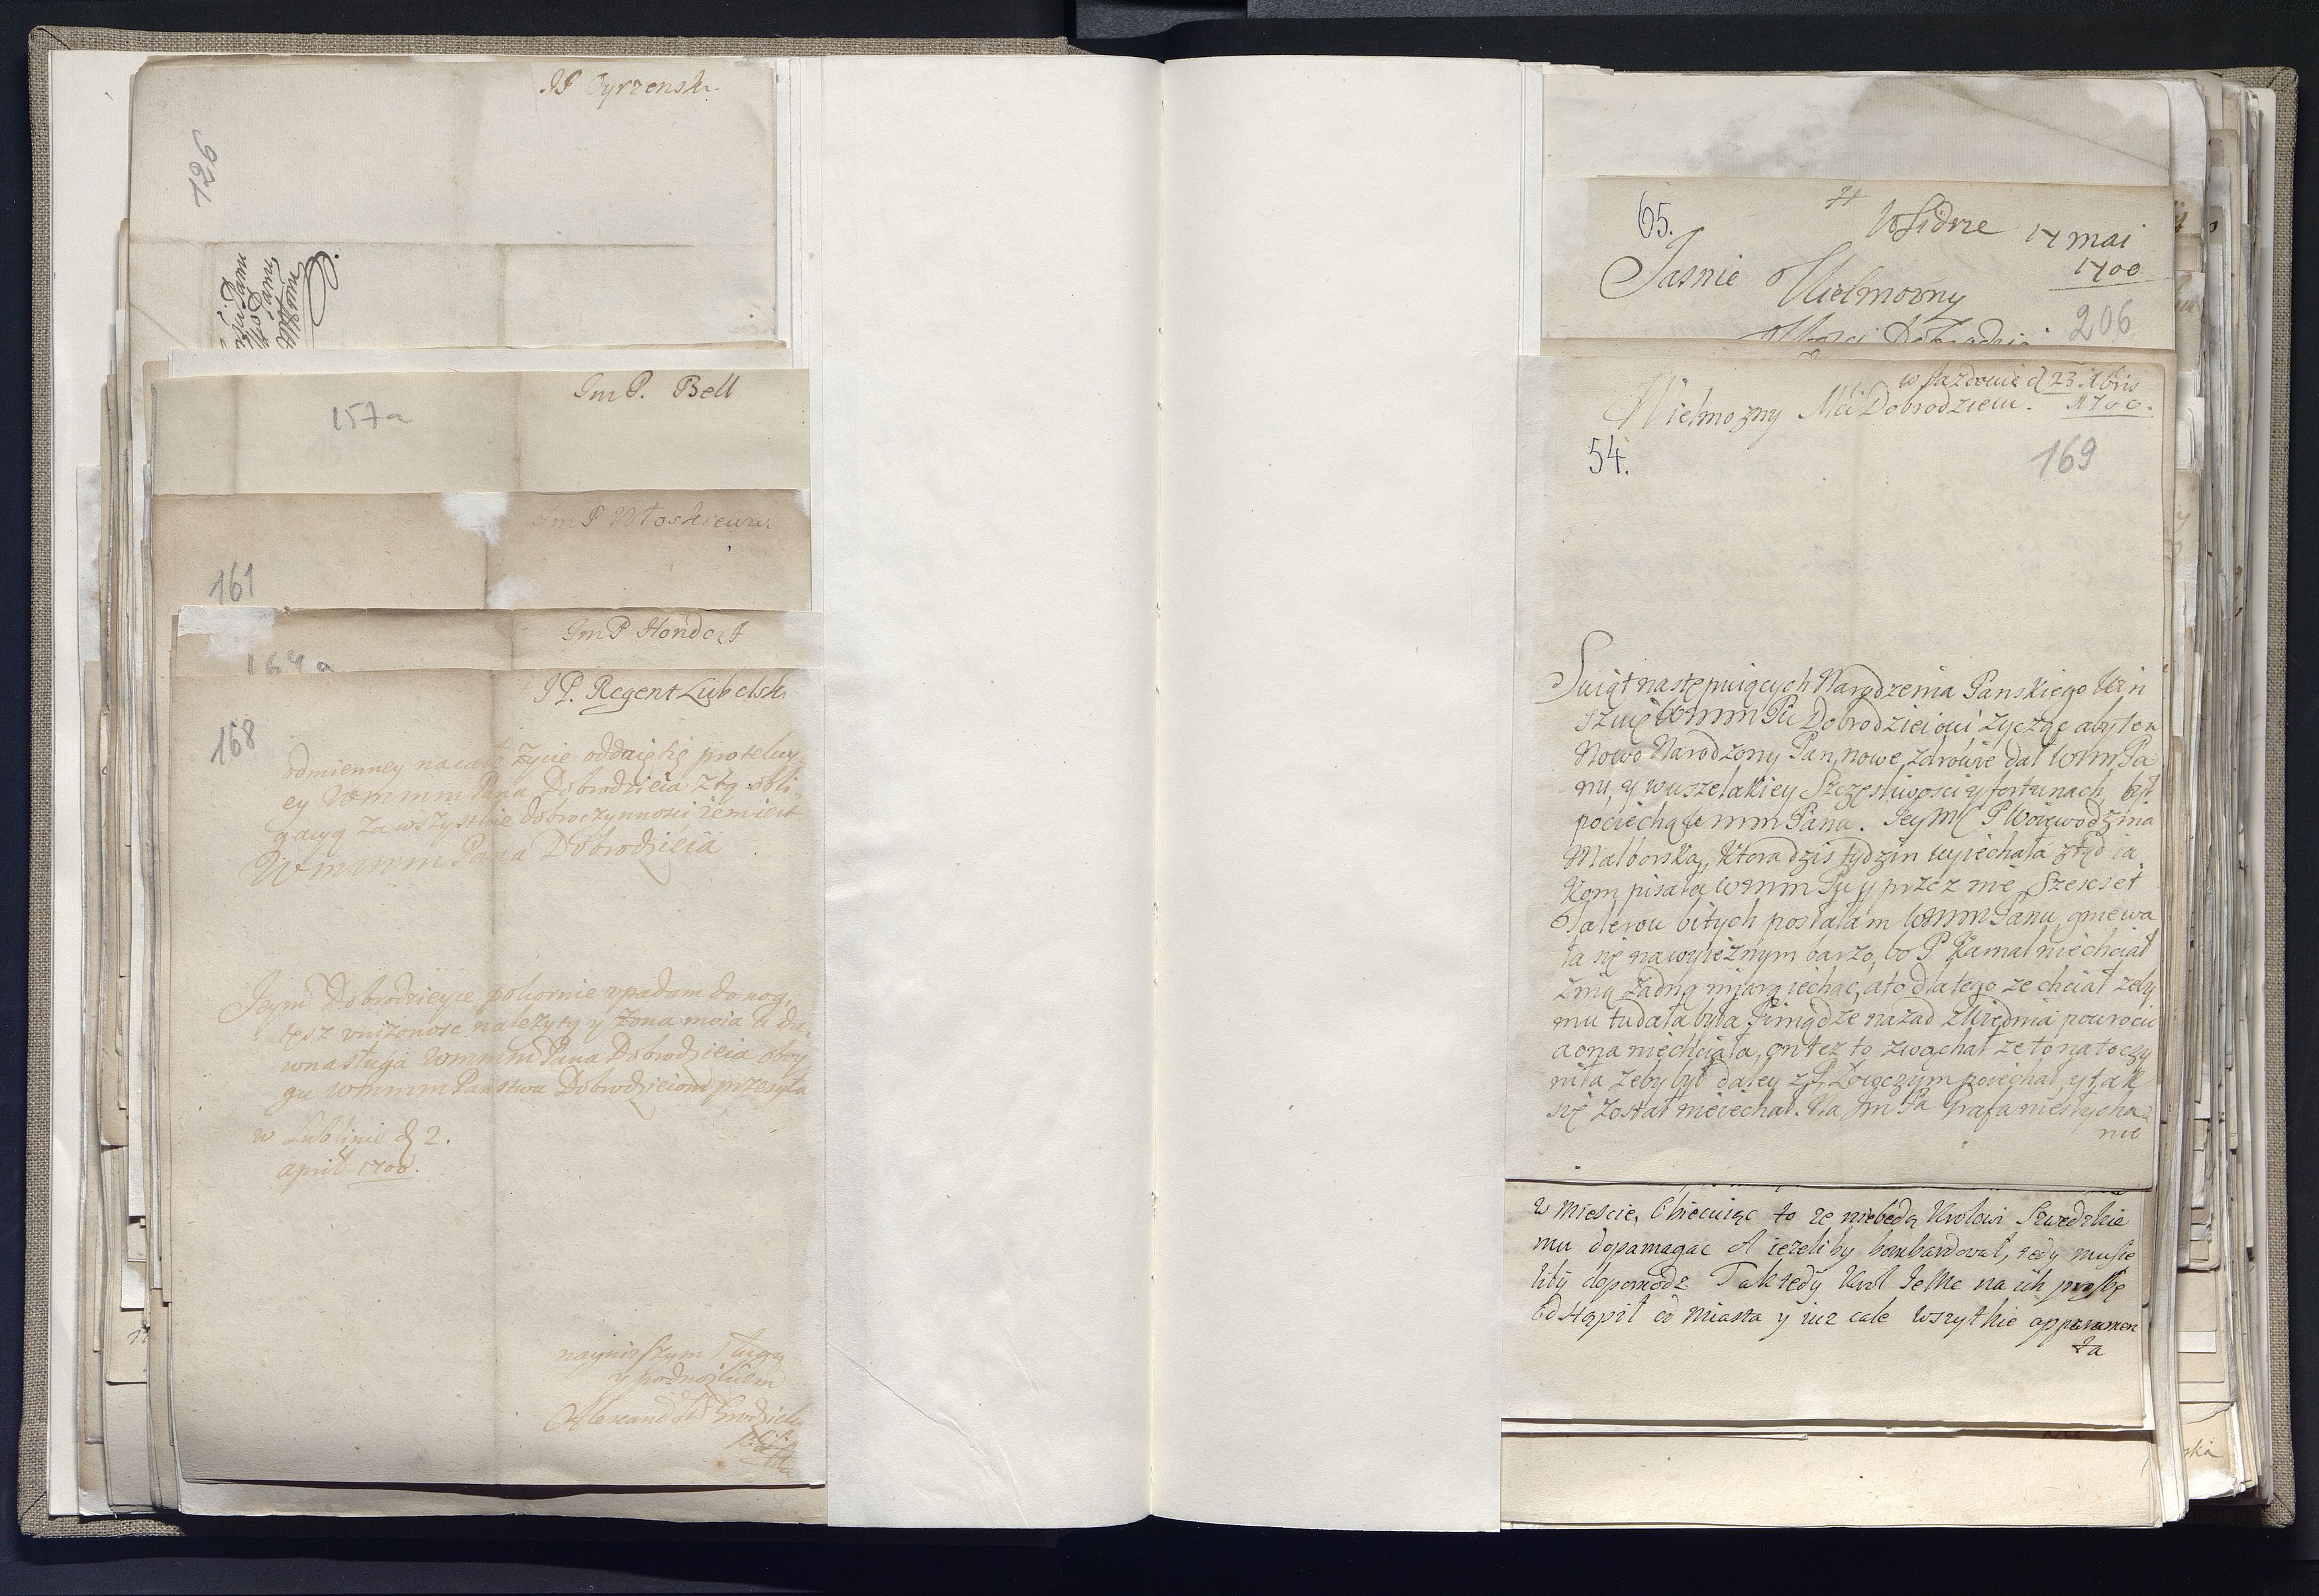 JP Dyrzenski
126
Jm P. Bell
157a
Jm P Włoskiewicz
161
Jm P Hondorf
164a
JP. Regent Lubelski
168
odmienney nacałe życie oddaię się protekcy
ey Wmmm Pana Dobrodzieia z tą obli
gacyą za wszystkie dobroczynności iemiest
Wmmm Pana Dobrodzieia
Jeymć Dobrodzieyce pokornie upadam do nog,
tesz vniżonosc należytą y żona moia
wna sługa Wmmm Pana Dobrodzieia oboy
gu Wmmm Państwu Dobrodzieiom przesyła
w Lublinie d 2.
april 1700.
nayniższym sługą
y podnożkiem
Alexand Grodzicki
65.
17 mai
1700
Jasnie Wielmozny
Dobrodzieiu
206
w Jazdowie d 23 Xbris
1700.
Wielmozny Mci Dobrodzieiu.
54.
169
Swiąt następuiących Narodzenia Panskiego win
szuię Wmm Pu Dobrodzieiowi życząc aby ten
Nowo Narodzony Pan, nowe zdrowie dał Wmm Pa
nu, y wuszelakiey Szczęsliwosci y fortunach, był
pociechą Wmm Panu. Jeymć P Woiewodzina
Malborska, ktora dzis tydzin wyiechała ztąd ia
kom pisała Wmm Pu y przez nię Szescset
Talerow bitych posłałam Wmm Panu, gniewa
ła się nawyieznym barzo, bo P Kamal niechciał
znią żadną miarą iechac, a to dlatego ze chciał zeby
mu tu dała była Piniądze nazad z Wiednia powrocic
a ona niechciała, on tez to zwąchał ze to na to czy
niła zeby był daley z P Łowczym poiechał, y tak
się został nieiechał. Na Jm Pa Grafa niesłycha
nie
w Miescie, Obiecuiąc to ze niebędą Krolowi Szwedzkie
mu dopamagac A iezeliby bombardował, tedy musie
liby dopomodz Tak tedy Krol Je Mc na ich prosbę
Odstąpił od Miasta y iuz cale wszytkie apparamen
ta